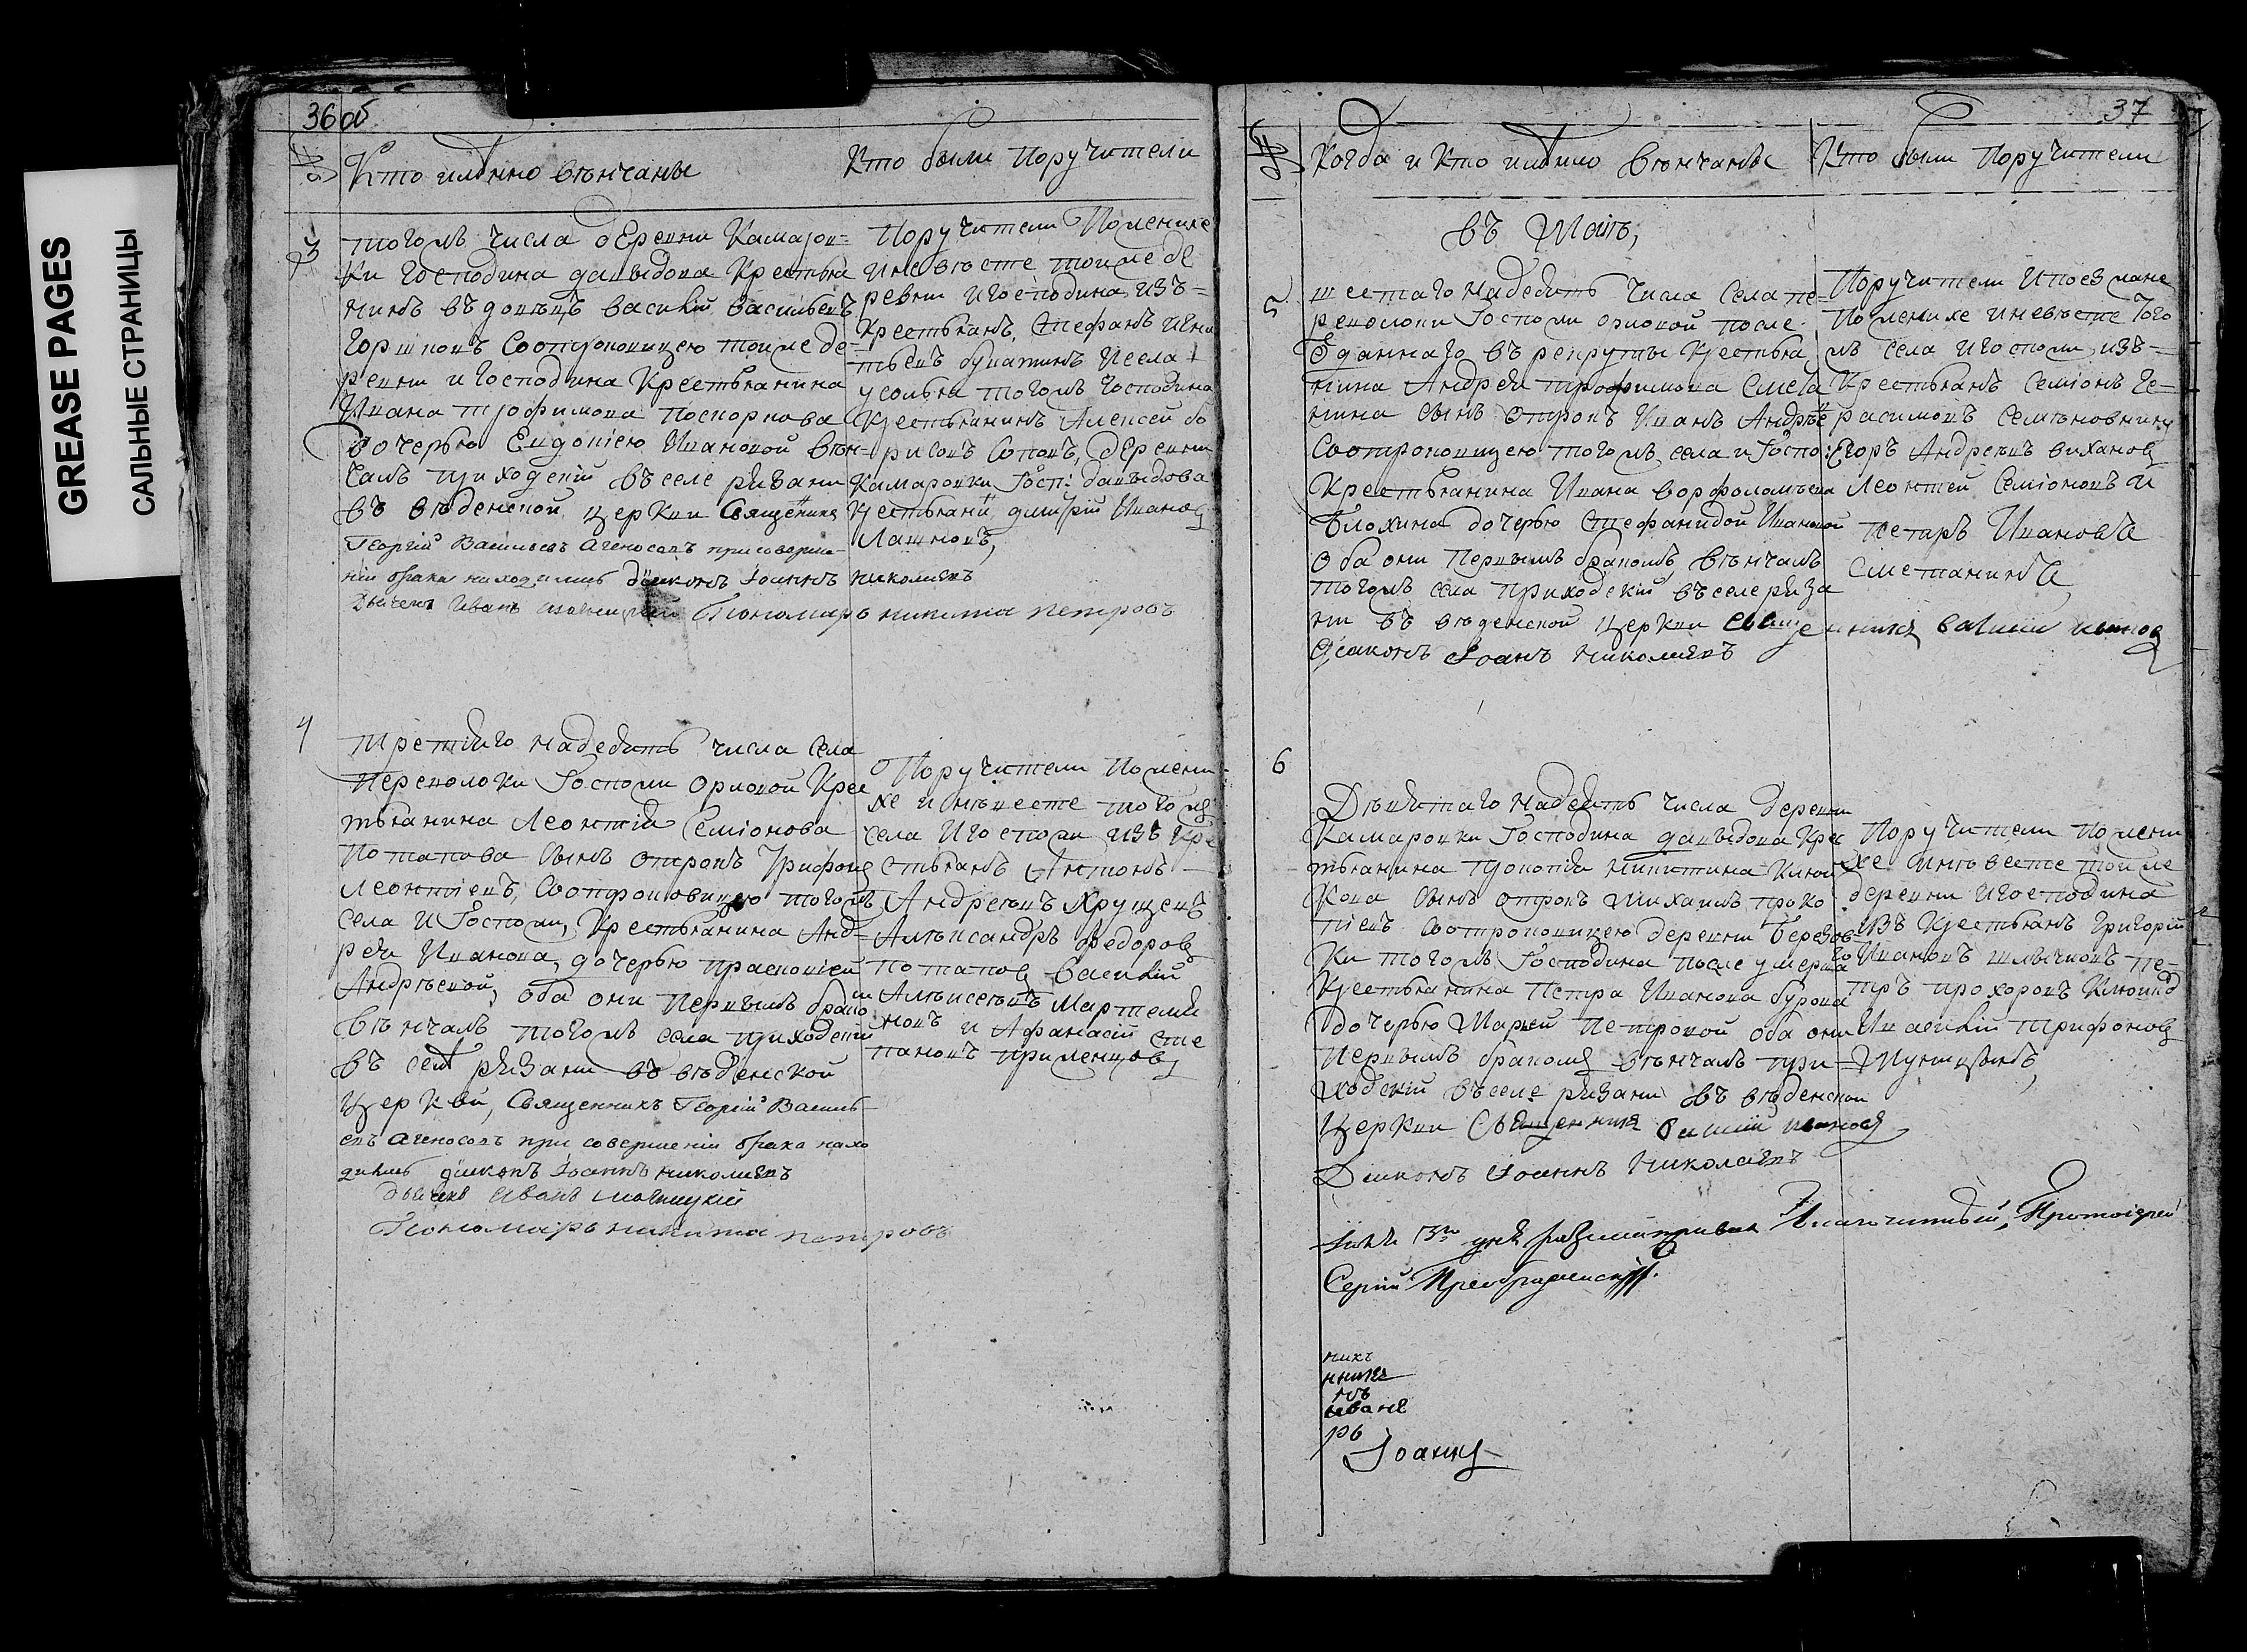 GREASE PAGES
САЛЬНЫЕ СТРАНИЦЫ
36 об
№
Кто имянно венчаны
Кто были поручители
3
тогожъ числа деревни Камаров=
ки Господина давыдова Крестья
нинъ вдовецъ василий васильевъ
Горшковъ Соотроковицею тойже де=
ревни и Господина Крестьянина
Ивана трофимова
дочерью Евдокiею Ивановой вен=
чалъ приходскiй въ селе рязани
въ введенской церкви Священникъ
Георгiй Васильевъ Агеносовъ при соверше-
нiи брака находились дiаконъ Iоаннъ николаевъ
Дьячекъ Иванъ
Пономарь никита петровъ
Поручители По жених
и невесте тойже де
ревни и Господина изъ=
Крестьянъ, Стефанъ Игна
тьевъ булаткинъ и села
усолья тогожъ Господина
Крестьянинъ Алексей бо
рисовъ Соповъ, деревни
Камаровки Госп: давыдова
крестьянинъ дмитрiй Ивановъ
Лашновъ,
4
третьяго надесять числа Села
Переволоки Госпожи Орловой Крес
тьянина Леонтiя Семiонова
Потапова сынъ отрокъ Трифонъ
Леонтiевъ, Соотроковицею тогожъ
села и Госпожи, Крестьянина Анд=
рея Иванова, дочерью прасковiей
Андреевой, оба они первымъ бракомъ
венчалъ тогожъ села приходскiй
въ селе рязани въ введенской
церкви, Священникъ Георгiй Василь-
евъ Агеносовъ при совершенiи брака нахо
дились дiаконъ Iоаннъ николаевъ
дьячекъ Иванъ
Пономарь никита петровъ
Поручители по жени-
хе и невесте тогожъ
села и Госпожи изъ Кре
стьянъ Антонъ
Андреевъ Хрущевъ
Алексанндръ Федоровъ
потаповъ василiй
Алексеевъ Мартемья
новъ и Афанасiй Сте
пановъ приленцовъ
37
№
Когда и Кто имянно венчаны
Кто были Поручители
въ Маiе,
5
шестаго надесять числа Села пе=
револоки Госпожи орловой после
отданнаго въ рекруты Крестья
нина Андрея трофимова Смета
нина сынъ отрокъ Иванъ Андреевъ
Соотроковицею тогожъ села и Госпо:
Крестьянина Ивана ворфоломеева
Блохина дочерью Стефанидой Ивановой
Оба они первымъ бракомъ, венчалъ
тогожъ села приходскiй въ селе ряза
ни въ введенской церкви священникъ василий ивановъ
Дiаконъ Iоанъ николаевъ
Поручители и поезжане
По женихе и невесте того
жъ села и Госпожи, изъ=
Крестьянъ Семiонъ Ге=
расимовъ
Егоръ Андреевъ вихановъ
Леонтей Семiоновъ и
петаръ Ивановы
Сметанины
6
Девятаго надесять числа деревни
Камаровки Господина давыдова Крес
тьянина прокопiя никитина Клюш
кова сынъ отрокъ михаилъ проко
пiевъ Соотроковицею деревни березов=
ки тогожъ Господина после умерша
го
Крестьянина Петра Иванова бурова
дочерью Марьей петровой оба они
первымъ бракомъ венчалъ при=
ходскiй въ селе рязани въ введенской
церкви Священникъ василий ивановъ
Дiаконъ Iоаннъ Николаевъ
Поручители по жени
хе и невесте тойже
деревни и Господина
изъ Крестьянъ Григорiй
Ивановъ шлычковъ пе=
тръ прохоровъ Клюшко
и василiй трифоновъ
Iюня 13го дня разсматривалъ Благочинный, Протоiерей
Сергiй Преображенскiй.
никъ
нникъ
нъ
иванъ
рь
Iоаннъ